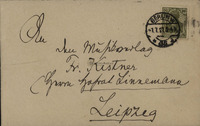 An
den Musikverlag
Fr. Kistner
Herrn Hofrat Linnemann
Leipzig